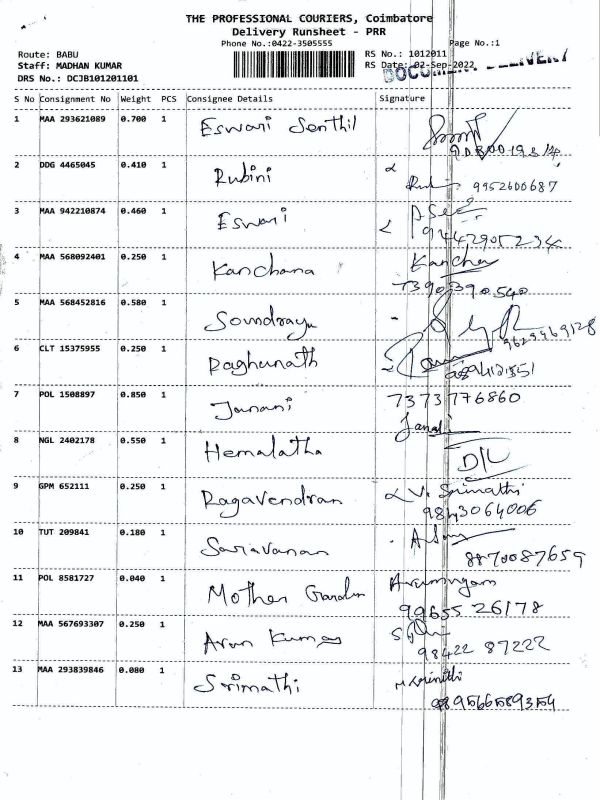 THE PROFESSIONAL COURIERS, Coimbatore
Delivery Runsheet - PRR
Phone No.:0422-3505555 Page No.:1
Route: BABU RS No.: 1012011
Staff: MADHAN KUMAR RS Date: 02-Sep-2022
DRS No.: DCJB101201101 DOCUMENT DELIVERY
S No Consignment No Weight PCS Consignee Details Signature
1 MAA 293621089 0.700 1 Eswari Senthil
2 DDG 4465045 0.410 1 Rubini
9952600687
3 MAA 942210874 0.460 1 Eswari
4 MAA 568092401 0.250 1 Kanchana Kancha
7390390540
5 MAA 568452816 0.580 1
9629469128
6 CLT 15375955 0.250 1 Raghunath
7 POL 1508897 0.850 1 Janani 7373776860
Janani
8 NGL 2402178 0.550 1 Hemalatha D/L
9 GPM 652111 0.250 1 Ragavendran V. Srimathi
9843064006
10 TUT 209841 0.180 1 Saravanan
8870087659
11 POL 8581727 0.040 1 Mother Arumugam
99655 26178
12 MAA 567693307 0.250 1 Arun Kumar
98422 87222
13 MAA 293839846 0.080 1 Srimathi